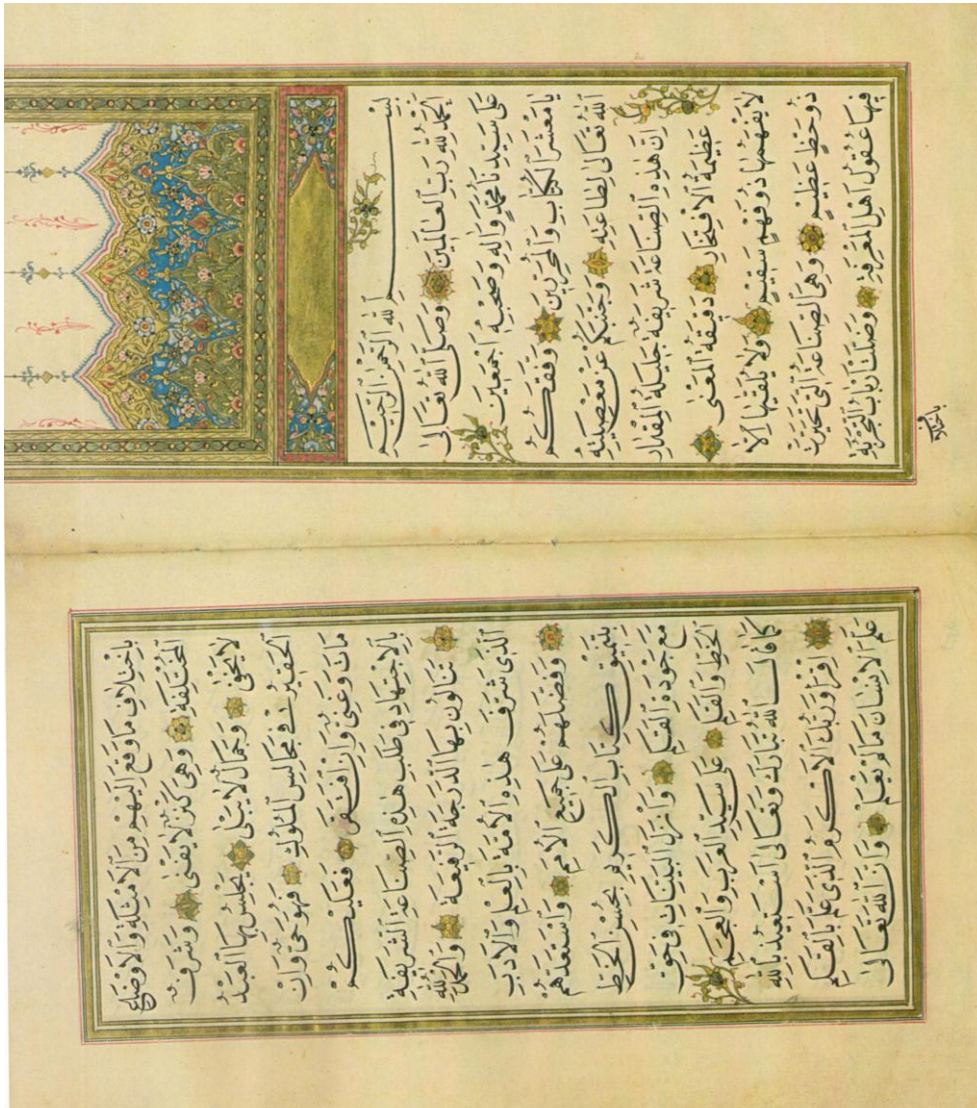 بسم الله الرحمن الرحيم
الحمد لله رب العالمين وصلى الله تعالى
على سيدنا محمد واله وصحبه اجمعين
يا معشر الكتاب والمحررين وفقكم
الله تعالى لطاعته وجنبكم عن معصيته
ان هذه الصناعة شريفة جليلة المقدار
عظيمة الافتخار دقيقة المعنى
لا يفهمها ذو فهم سقيم ولا يلقيها الا
ذو حظ عظيم وهي الصناعة التي تحيرت
فيها عقول اهل المعرفة وضلت ارباب التجربة
باختلاف
باختلاف ما وقع اليهم من الامثلة والاوضاع
المختلفة وهي كنز لا يفنى وشرف
لا يخفى وجمال لا يبلى يجلس بها العبد
الحقير في مجالس الملوك فهو حي وان
مات وغني وان افتقر فعليكم
بالاجتهاد في طلب هذه الصناعة الشريفة
تنالون بها الدرجة الرفيعة والحمد لله
الذي شرف هذه الامة بالعلم والادب
وفضلهم على جميع الامم واستعدهم
بتنميق كتاب الكريم بحسن الخط
مع جودة القلم وانزل البينات في حق
الخط والقلم على سيد العرب والعجم
كما قال الله تبارك وتعالى استعيذ بالله
اقرأ وربك الاكرم الذي علم بالقلم
علم الانسان ما لم يعلم وان الله تعالى